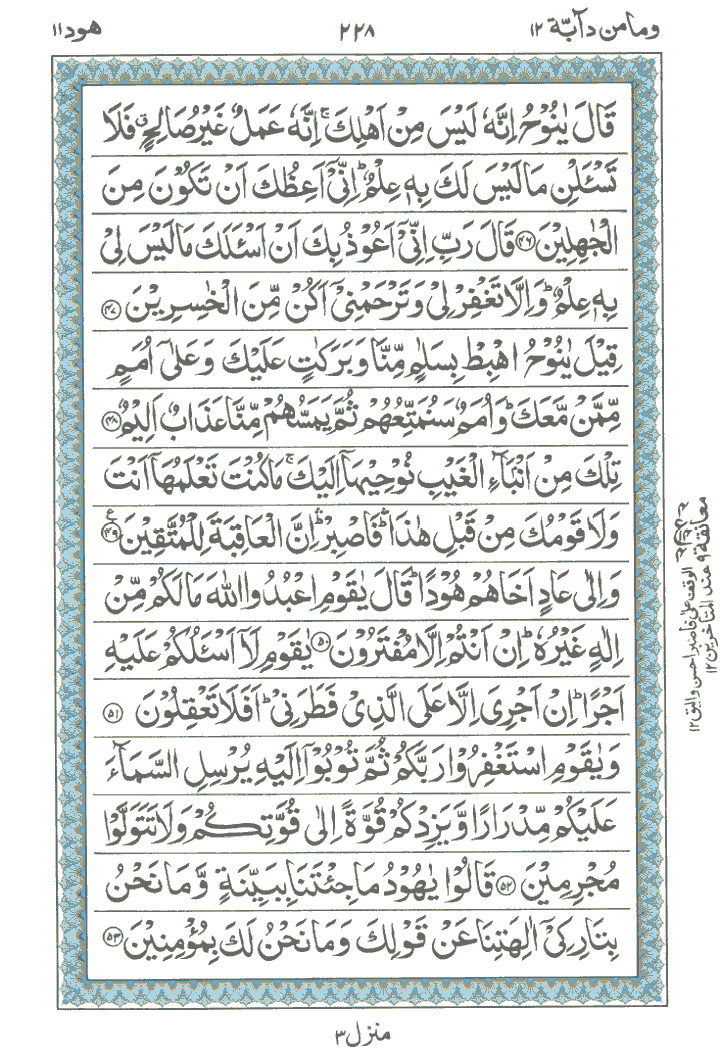 وما من دآبّة ۱۲
۲۲۸
هود ۱۱
قَالَ يٰنُوْحُ اِنَّهٗ لَيْسَ مِنْ اَهْلِكَ ۚ اِنَّهٗ عَمَلٌ غَيْرُ صَالِحٍ ۖ فَلَا
تَسْـَٔلْنِ مَا لَيْسَ لَكَ بِهٖ عِلْمٌ ؕ اِنِّىْۤ اَعِظُكَ اَنْ تَكُوْنَ مِنَ
الْجٰهِلِيْنَ ﴿۴۶﴾ قَالَ رَبِّ اِنِّىْۤ اَعُوْذُ بِكَ اَنْ اَسْـَٔلَكَ مَا لَيْسَ لِىْ
بِهٖ عِلْمٌ ؕ وَ اِلَّا تَغْفِرْ لِىْ وَ تَرْحَمْنِىْۤ اَكُنْ مِّنَ الْخٰسِرِيْنَ ﴿۴۷﴾
قِيْلَ يٰنُوْحُ اهْبِطْ بِسَلٰمٍ مِّنَّا وَ بَرَكٰتٍ عَلَيْكَ وَ عَلٰۤى اُمَمٍ
مِّمَّنْ مَّعَكَ ؕ وَ اُمَمٌ سَنُمَتِّعُهُمْ ثُمَّ يَمَسُّهُمْ مِّنَّا عَذَابٌ اَلِيْمٌ ﴿۴۸﴾
تِلْكَ مِنْ اَنْۢبَآءِ الْغَيْبِ نُوْحِيْهَاۤ اِلَيْكَ ۚ مَا كُنْتَ تَعْلَمُهَاۤ اَنْتَ
وَ لَا قَوْمُكَ مِنْ قَبْلِ هٰذَا ۛؕ فَاصْبِرْ ۛؕ اِنَّ الْعَاقِبَةَ لِلْمُتَّقِيْنَ ﴿۴۹﴾ ع
وَ اِلٰى عَادٍ اَخَاهُمْ هُوْدًا ؕ قَالَ يٰقَوْمِ اعْبُدُوا اللّٰهَ مَا لَكُمْ مِّنْ
اِلٰهٍ غَيْرُهٗ ؕ اِنْ اَنْتُمْ اِلَّا مُفْتَرُوْنَ ﴿۵۰﴾ يٰقَوْمِ لَاۤ اَسْـَٔلُكُمْ عَلَيْهِ
اَجْرًا ؕ اِنْ اَجْرِىَ اِلَّا عَلَى الَّذِىْ فَطَرَنِىْ ؕ اَفَلَا تَعْقِلُوْنَ ﴿۵۱﴾
وَ يٰقَوْمِ اسْتَغْفِرُوْا رَبَّكُمْ ثُمَّ تُوْبُوْۤا اِلَيْهِ يُرْسِلِ السَّمَآءَ
عَلَيْكُمْ مِّدْرَارًا وَّ يَزِدْكُمْ قُوَّةً اِلٰى قُوَّتِكُمْ وَ لَا تَتَوَلَّوْا
مُجْرِمِيْنَ ﴿۵۲﴾ قَالُوْا يٰهُوْدُ مَا جِئْتَنَا بِبَيِّنَةٍ وَّ مَا نَحْنُ
بِتَارِكِىْۤ اٰلِهَتِنَا عَنْ قَوْلِكَ وَ مَا نَحْنُ لَكَ بِمُؤْمِنِيْنَ ﴿۵۳﴾
معانقة ۹ عند المتاخرين ۱۲
الوقف على فاصبر احسن واليق ۱۲
منزل ۳